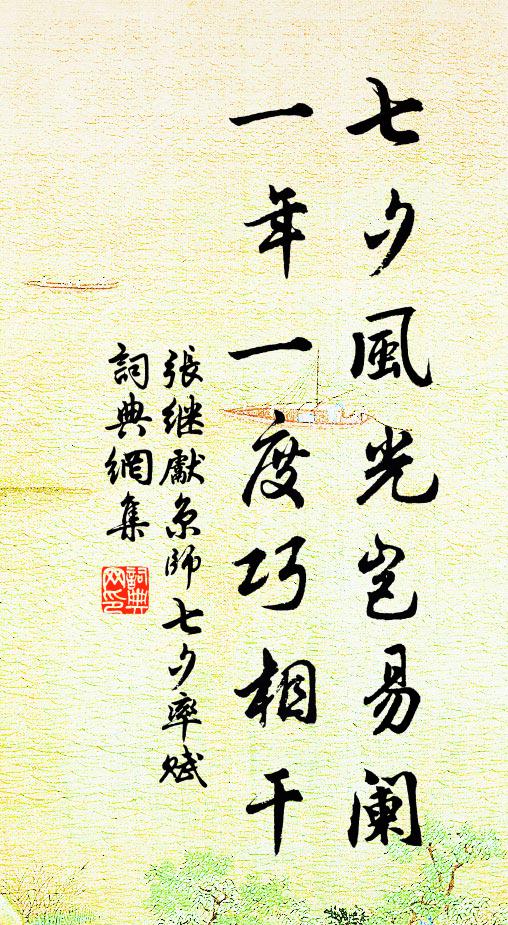 七夕風光岂易阑
一年一度巧相干
張继獻京師七夕率赋
詞典網集
詞典網印